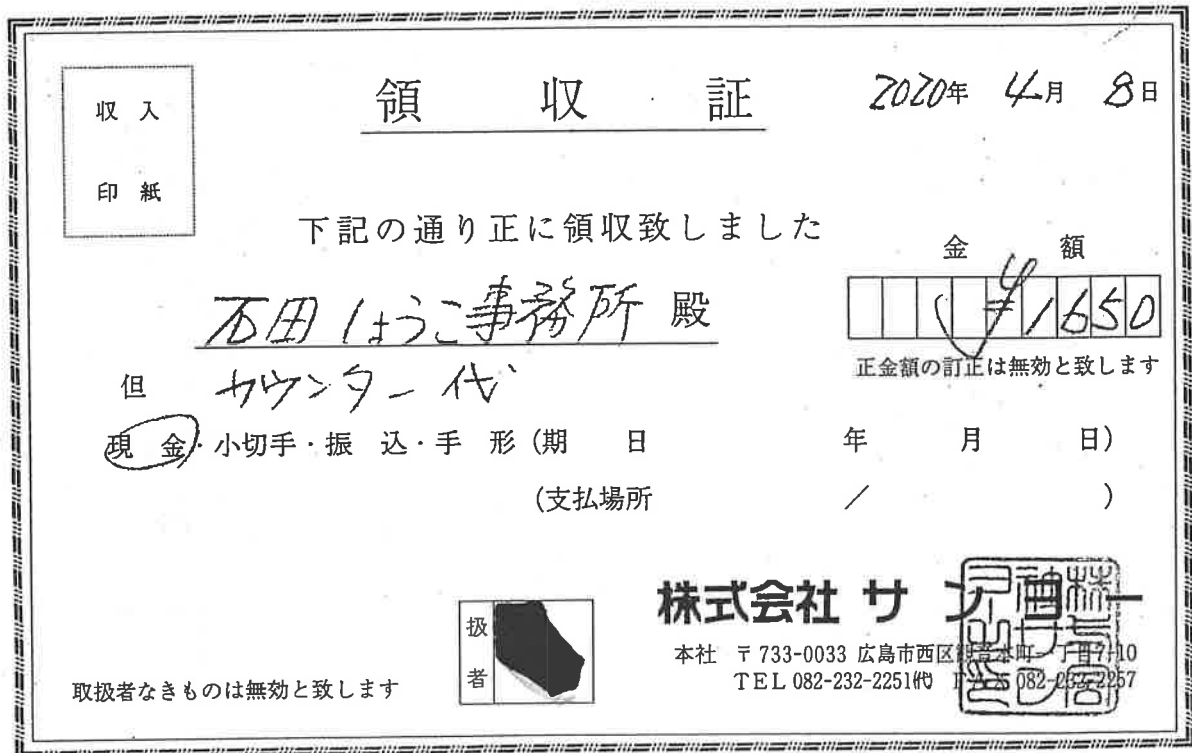 収入
印紙
領収証
2020年 4月 8日
下記の通り正に領収致しました
金額
石田しょうこ事務所 殿
¥1650
正金額の訂正は無効と致します
但 カウンター代
現金・小切手・振込・手形(期日 年 月 日)
(支払場所 / )
株式会社 サンヨー
扱者
本社 〒733-0033 広島市西区観音本町一丁目7-10
TEL 082-232-2251代 FAX 082-232-2267
取扱者なきものは無効と致します